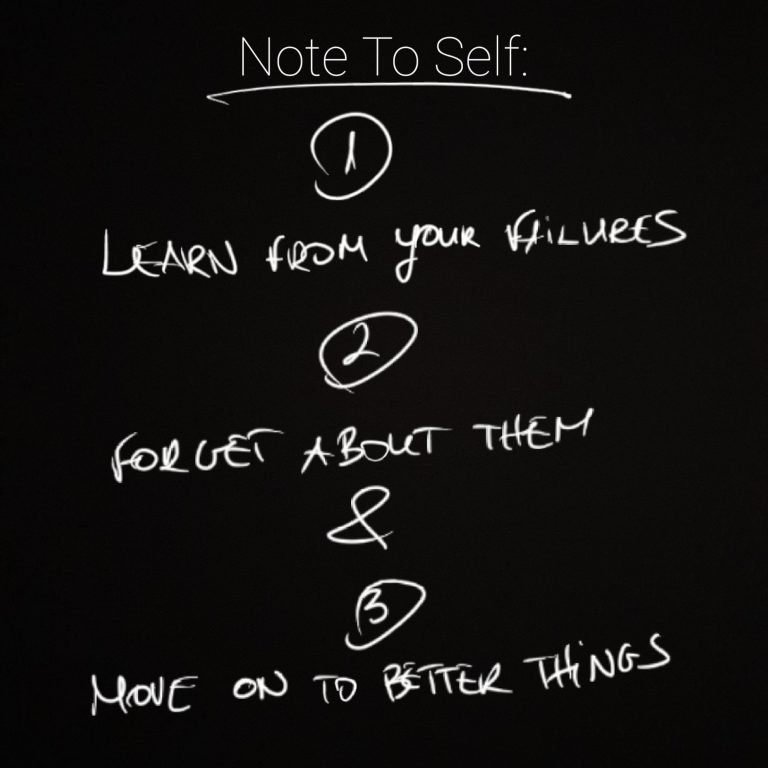 Note To Self:
1
LEARN FROM YOUR FAILURES
2
FORGET ABOUT THEM
&
3
MOVE ON TO BETTER THINGS